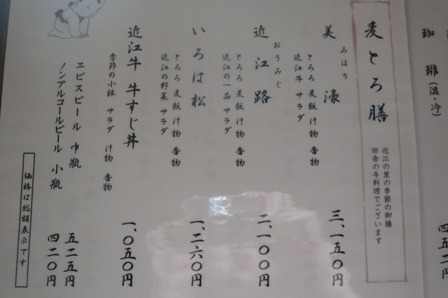 珈琲(温冷)
四五二円
麦とろ膳
近江の里の季節の御膳
田舎の手料理でございます
みほり
美濠
とろろ 麦飯 汁物 香物
近江牛 サラダ
三、一五〇円
おうみじ
近江路
とろろ 麦飯 汁物 香物
近江の一品 サラダ
二、一〇〇円
いろは松
とろろ 麦飯 汁物 香物
近江の野菜 サラダ
一、二六〇円
近江牛 牛すじ丼
季節の小鉢 サラダ 汁物 香物
一、〇五〇円
ヱビスビール 中瓶
五二五円
ノンアルコールビール 小瓶
四二〇円
価格は総額表示です